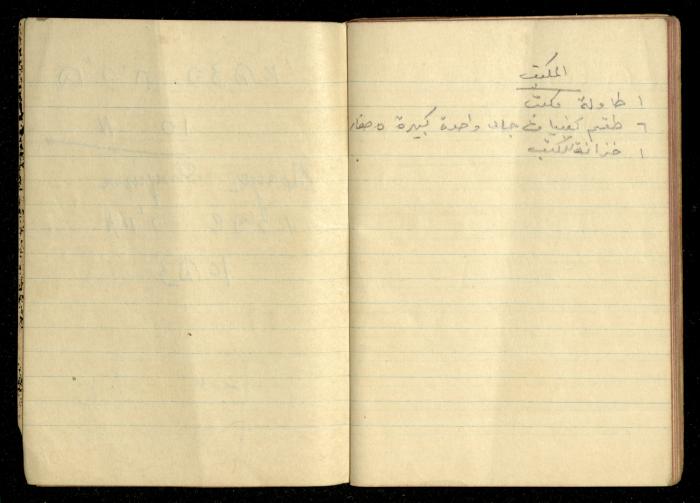 المكتب
١ طاولة مكتب
٦ طقم كنبات جالس واحدة كبيرة ٥ صغار
١ خزانة للكتب